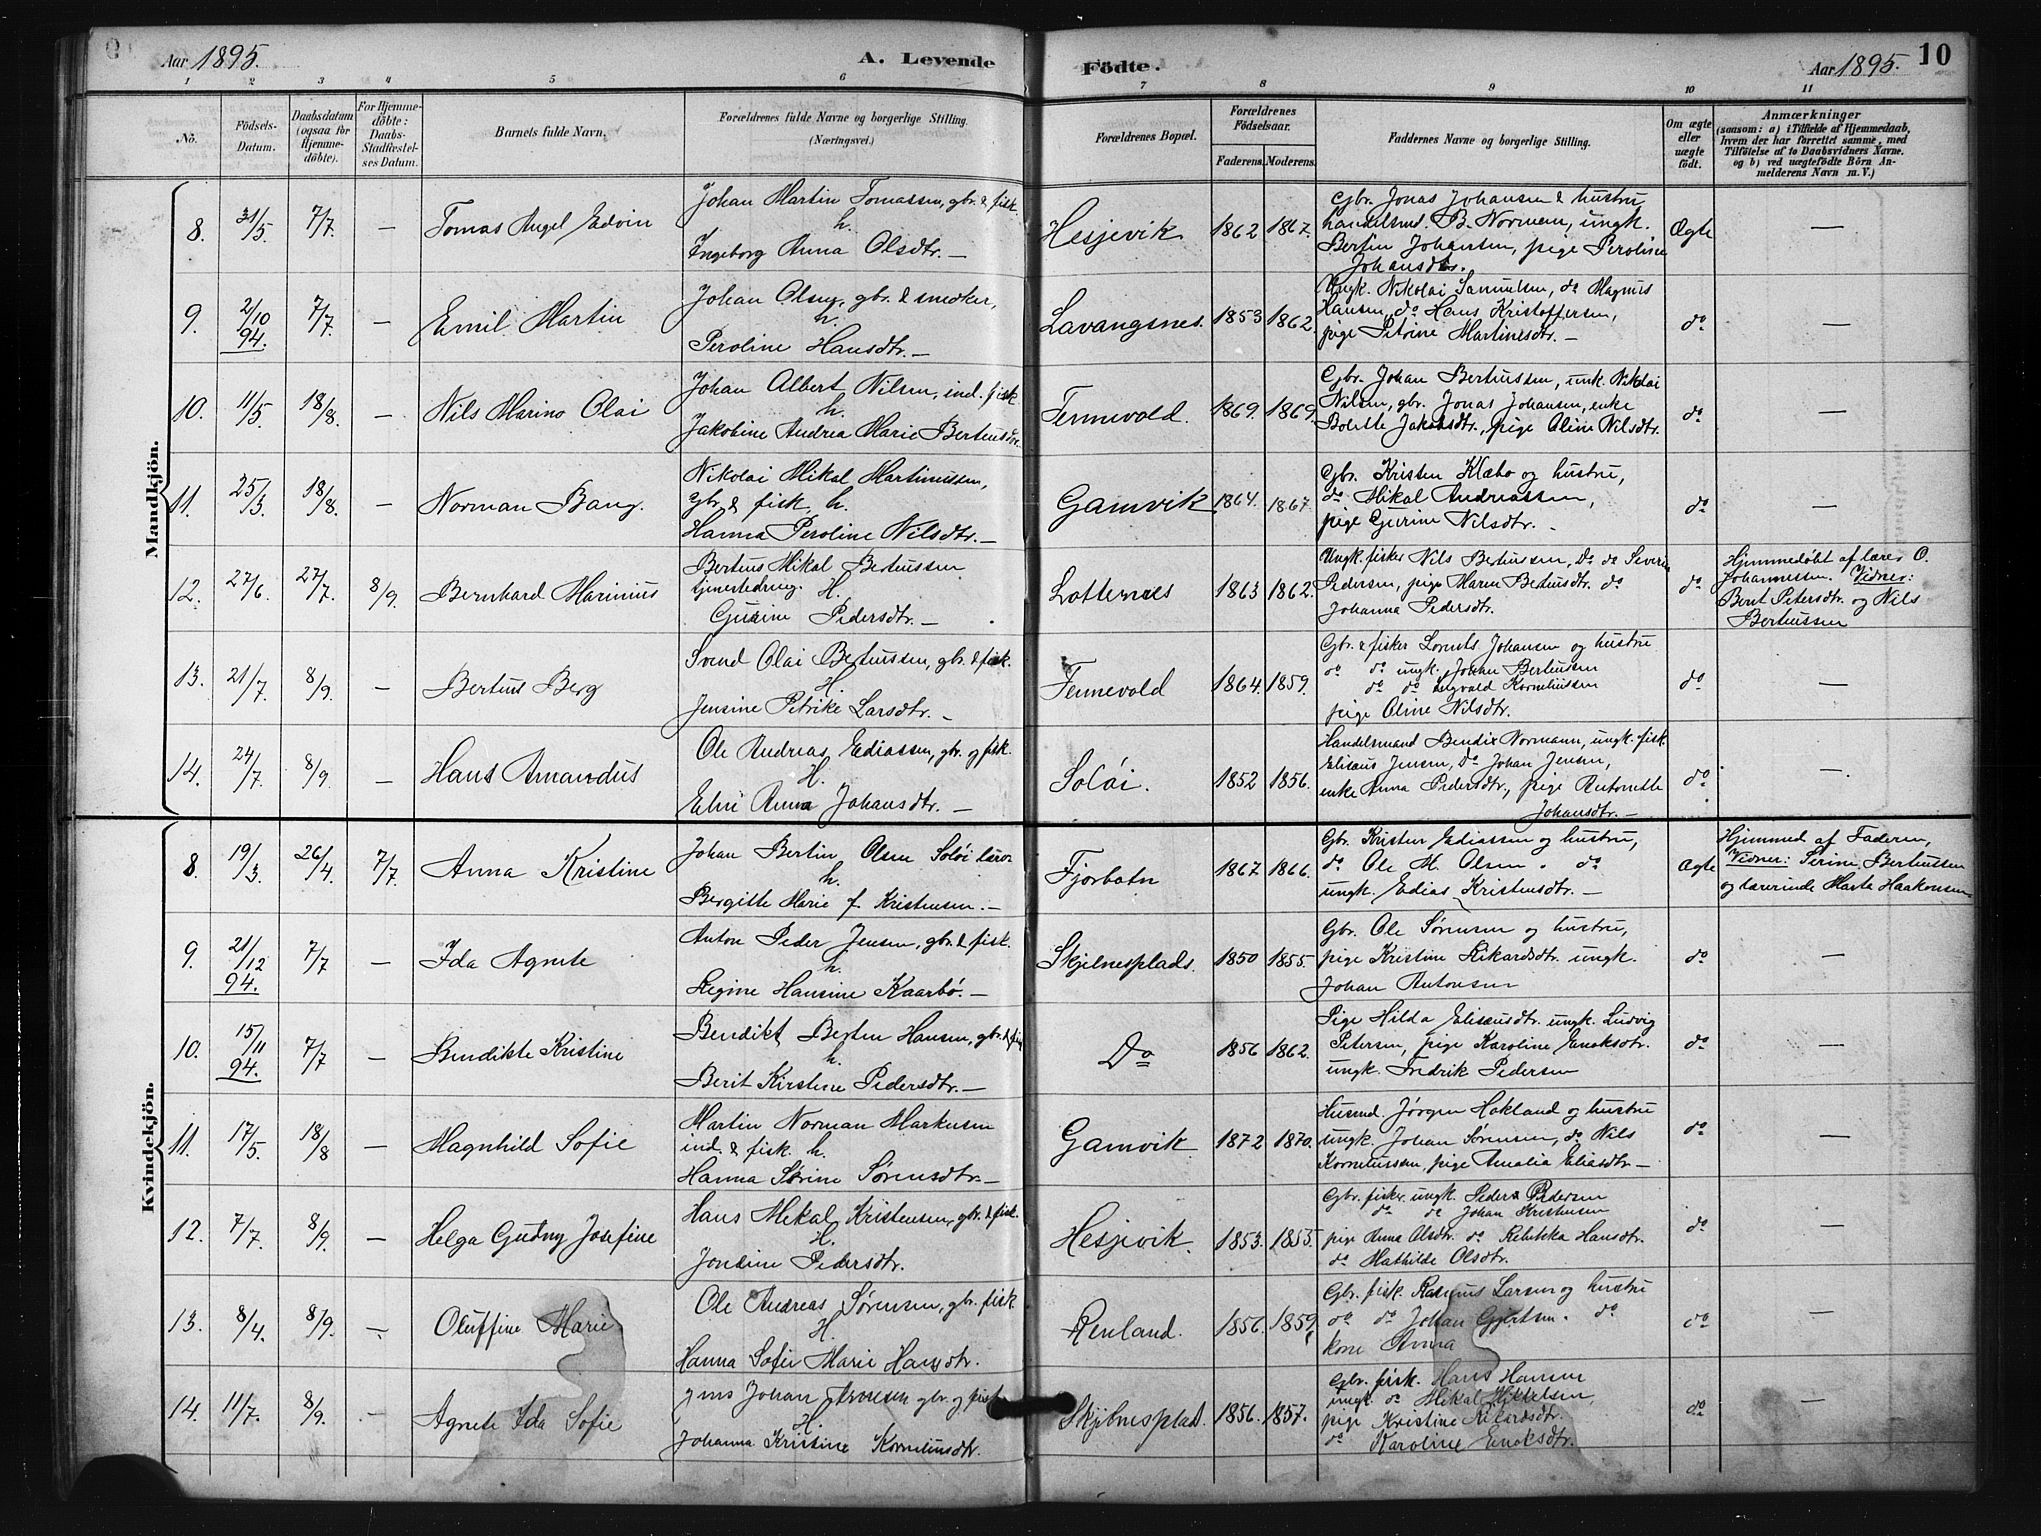 Aar 1895. A. Levende Födte. Aar 1895. 10
1 2 3 4 5 6 7 8 9 10 11
No.
Födsels-
Datum.
Daabsdatum
(ogsaa for
Hjemme-
döbte).
For Hjemme-
döbte:
Daabs-
Stadfæstel-
ses Datum.
Barnets fulde Navn.
Forældrenes fulde Navne og borgerlige Stilling
(Næringsvei.)
Forældrenes Bopæl.
Forældrenes
Födselsaar.
Faderens. Moderens.
Faddernes Navne og borgerlige Stilling.
Om ægte
eller
uægte
födt.
Anmærkninger
(saasom: a) i Tilfælde af Hjemmedaab,
hvem der har forrettet samme, med
Tilföielse af to Daabsvidners Navne.
og b) ved uægtefödte Börn An-
melderens Navn m. V.)
Mandkjön.
8. 31/5 7/7. — Tomas Angel Edvin
Johan Martin Tomassen, gbr. & fisk.
h.
Ingeborg Anna Olsdtr. —
Hesjevik 1862 1867.
Gbr. Jonas Johansen & hustru
handelsmd. B. Normann, ungk.
Bertin Johansen, pige Peroline
Johansdtr.
Ægte —
9. 2/10 94. 7/7. — Emil Martin
Johan Olsen, gbr. & snedker,
h.
Peroline Hansdtr. —
Lavangsnes. 1853 1862.
Ungk. Nikolai Samuelsen, do Magnus
Hansen, do Hans Kristoffersen,
pige Petrine Martinesdtr. —
do —
10. 11/5 18/8. — Nils Marino Olai
Johan Albert Nilsen, ind. fisk
h.
Jakobine Andrea Marie Berteusdtr.
Fennevold. 1869. 1869.
Gbr. Johan Berteussen, unk. Nikolai
Nilsen, gbr. Jonas Johansen, enke
Bolette Jakobsdtr., pige Oline Nilsdtr.
do —
11. 25/3. 18/8. — Norman Bang.
Nikolai Mikal Martinussen,
gbr. & fisk. h.
Hanna Peroline Nilsdtr. —
Gamvik 1864. 1867.
Gbr. Kristen Klæbo og hustru,
do Mikal Andreassen,
pige Gurine Nilsdtr. —
do —
12. 27/6. 27/7. 8/9. Bernhard Marinius
Berteus Mikal Berteussen
H.
Gurine Pedersdtr. —
Lotternes 1863 1862.
Ungk. fisker Nils Berteussen, Do do Severin
Pedersen, pige Maren Berteusdtr. do
Johanna Pedersdtr.
do
Hjemmedøbt af lærer O.
Johannessen. Vidner:
Berit Petersdtr. og Nils
Berteussen
13. 21/7. 8/9. — Berteus Berg
Svend Olai Berteussen, gbr. & fisk.
H.
Jensine Petrike Larsdtr. —
Fennevold 1864. 1859.
Gbr. & fisker Lorents Johansen og hustru
do do ungk. Johan Berteusen
do do Ingvald Korneliussen
pige Oline Nilsdtr.
do —
14. 24/7. 8/9. — Hans Amandus
Ole Andreas Ediassen, gbr. og fisk.
H.
Elen Anna Johansdtr. —
Soløi. 1852 1856.
Handelsmand Bendix Normann, ungk. fisk.
Elisæus Jensen, Do Johan Jensen,
enke Anna Pedersdtr., pige Antonette
Johansdtr. —
do —
Kvindekjön.
8. 19/3. 26/4. 7/7. Anna Kristine
Johan Bertin Olsen Soløi lærer
h.
Bergitte Marie f. Kristensen. —
Fjorbotn 1867 1866.
Gbr. Kristen Ediassen og hustru,
do Ole M. Olsen. do
ungk. Edias Kristensdtr. —
Ægte
Hjemmed af Faderen,
Vidner: Serine Berteussen
og lærerinde Marta Haakonsen
9. 21/12 94. 7/7 — Ida Agnete
Anton Peder Jensen, gbr. & fisk.
h.
Regine Hansine Kaarbø. —
Skjelnesplads. 1850 1855.
Gbr. Ole Sørensen og hustru,
pige Kristine Rikardsdtr. ungk.
Johan Antonsen
do —
10. 15/11 94. 7/7 — Bendikte Kristine
Bendikt Berten Hansen, gbr. & fisk
h.
Berit Kirstine Pedersdtr. —
Do 1856 1862.
Pige Hilda Elisæusdtr. ungk. Ludvig
Petersen, pige Karoline Enoksdtr.
ungk. Fredrik Pedersen
do —
11. 17/5. 18/8 — Magnhild Sofie
Martin Norman Markusen
ind. & fisk. h.
Hanna Sørine Sørensdtr. —
Gamvik 1872 1870.
Husmd. Jørgen Hokland og hustru
ungk. Johan Sørensen, do Nils
Korneliussen, pige Amalia Eliasdtr —
do —
12. 7/7. 8/9. — Helga Gudny Josefine
Hans Mekal Kristensen, gbr. & fisk.
H.
Jondine Pedersdtr.
Hesjevik. 1853. 1855.
Gbr. fisker ungk. Peder Pedersen
do de Johan Kristensen
pige Anna Olsdtr. do Rebekka Hansdtr.
do Mathilde Olsdtr.
do —
13. 8/4. 8/9. — Oluffine Marie
Ole Andreas Sørensen, gbr. fisk.
H.
Hanna Sofie Marie Hansdtr.
Renland. 1856. 1859.
Gbr. fisk. Rasmus Larsen og hustru
do do Johan Gjertsen. do
kone Anna
do —
14. 11/7. 8/9. — Agnete Ida Sofie
Johan gbr. og fisk
H.
Johanna Kristine Korneliusdtr.
Skjelnesplad. 1856. 1857.
Gbr. fisk. Hans Hansen
ungk. do Mikal Mikkelsen,
pige Kristine Rikardsdtr.
do Karoline Enoksdtr.
do —